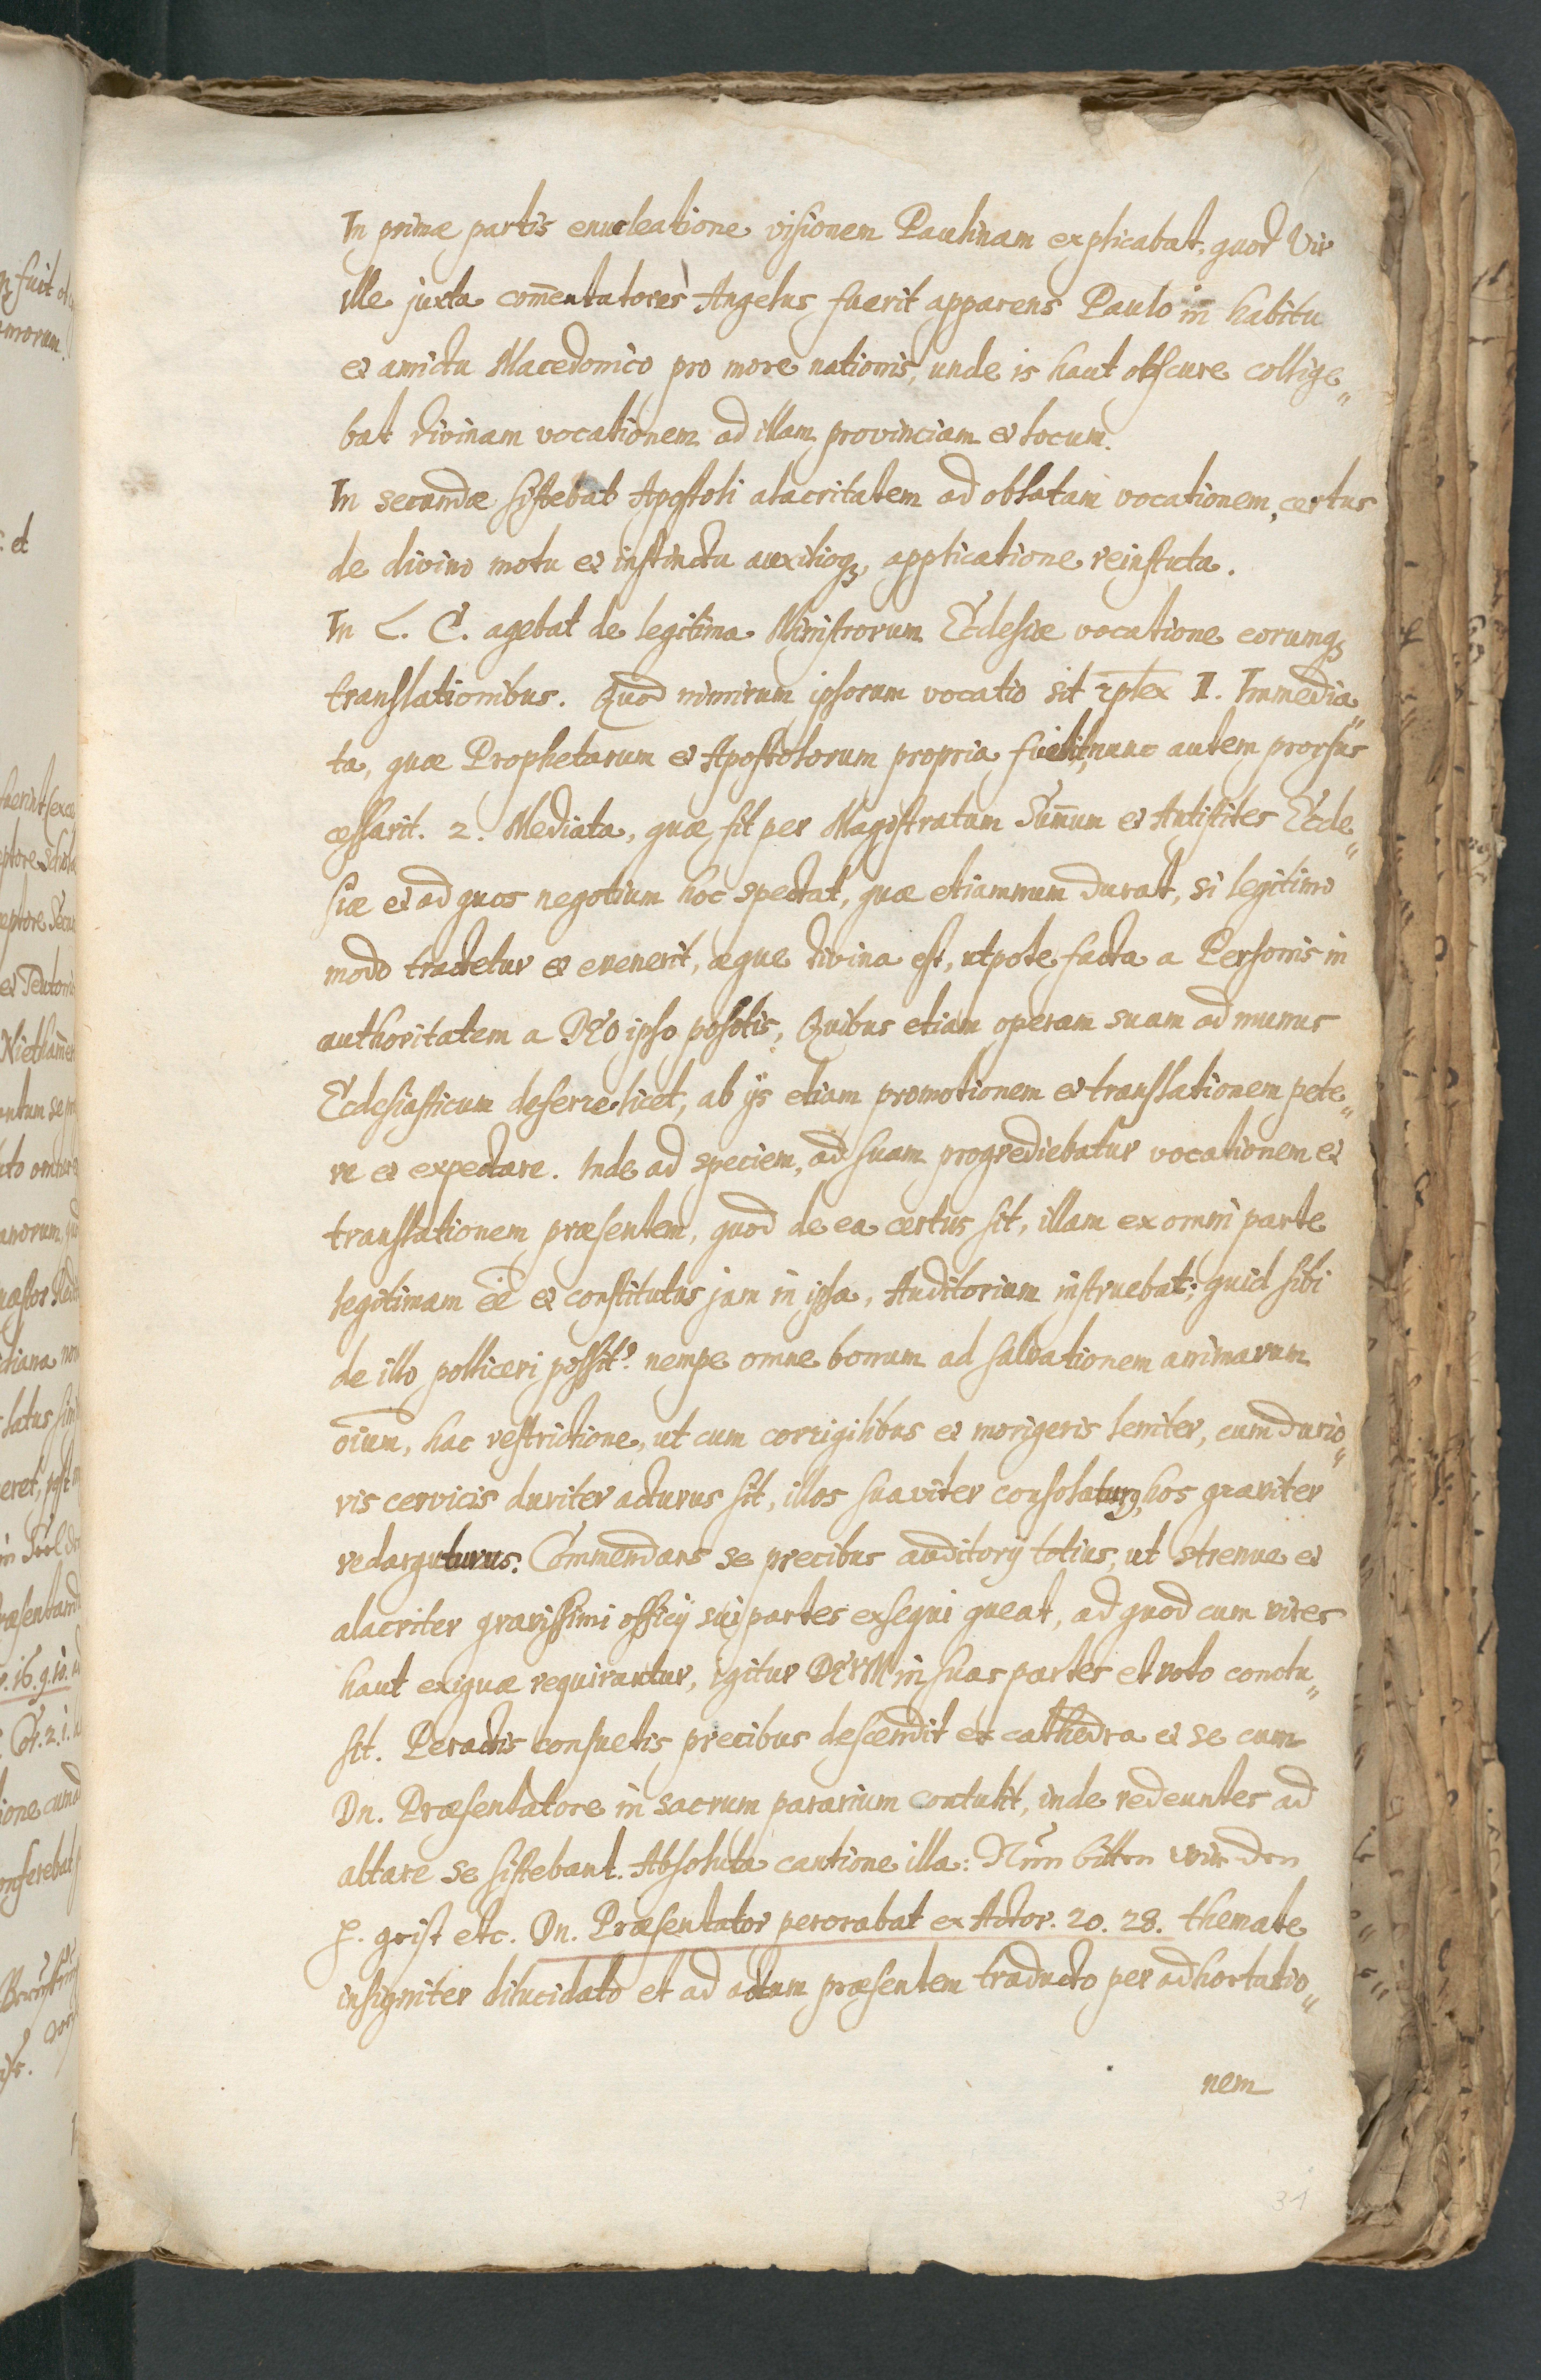 In primæ partis enucleatione visionem Paulinam explicabat, quod Vir
ille juxta com̄entatores Angelus fuerit apparens Paulo in habitu
et amictu Macedonico pro more nationis, unde is haut obscure collige„
bat divinam vocationem ad illam provinciam et locum.
In secundæ sistebat Apostoli alacritatem ad oblatam vocationem, certus
de divino motu et instinctu auxilioq₃, applicatione
In L. C. agebat de legitima Ministrorum Ecclesiæ vocatione eorumq₃
translationibus. Quod nimirum ipsorum vocatio sit 2plex 1. Immedia„
ta, quæ Prophetarum et Apostolorum propria fuit, nunc autem prorsus
cessarit. 2. Mediata, quæ fit per Magistratum Sum̄um et Antistites Eccle„
siæ et ad quos negotium hoc spectat, quæ etiamnum durat, si legitimo
modo tractetur et evenerit, æque divina est, utpote facta a Personis in
authoritatem a DEO ipso positis, Quibus etiam operam suam ad munus
Ecclesiasticum deferre licet, ab ijs etiam promotionem et translationem pete„
re et expectare. Inde ad speciem, ad suam progrediebatur vocationem et
translationem præsentem, quod de ea certus sit, illam ex omni parte
legitimam ēē et constitutus jam in ipsa, Auditorium instruebat; quid sibi
de illo polliceri possit? nempe omne bonum ad salvationem animarum
oīum, hac restrictione, ut cum corrigilibus et morigeris leniter, cum durio„
ris cervicis duriter acturus sit, illos suaviter consolaturus, hos graviter
redarguturus. Commendans se precibus auditorij totius, ut strenue et
alacriter gravissimi officij sui partes exsequi queat, ad quod cum vires
haut exiguæ requirantur, igitur DEUM in suas partes et voto conclu„
sit. Peractis consuetis precibus descendit ex cathedra et se cum
Dn. Præsentatore in sacrum pararium contulit, inde redeuntes ad
altare se sistebant. Absoluta cantione illa: Nun bitten wir den
H. geist etc. Dn. Præsentator perorabat ex Actor. 20. 28. themate
insigniter dilucidato et ad actum præsentem traducto per adhortatio„
nem
31